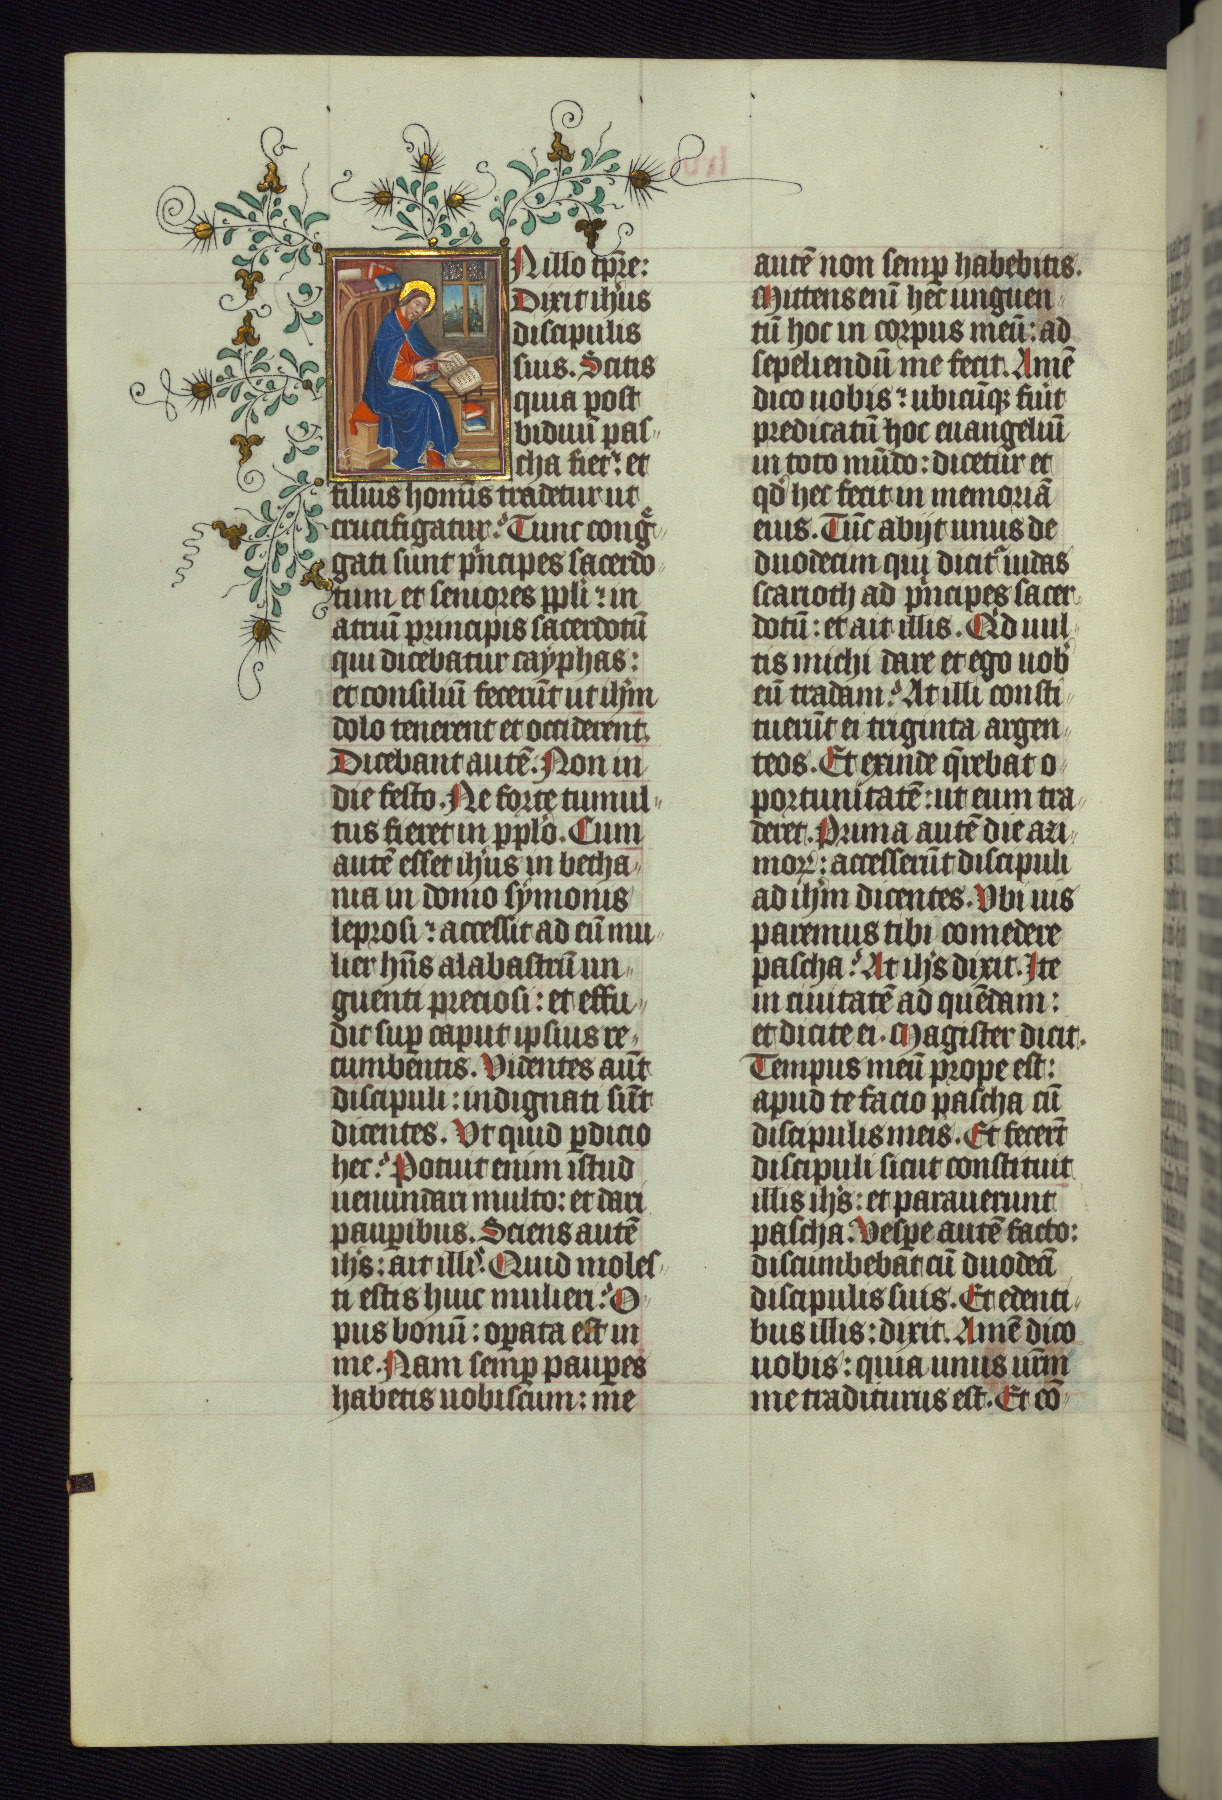 N illo tp̄re:
Dixit ihūs
discipulis
suis. Scitis
quia post
biduū pas„
cha fiet: et
filius homīs tradetur ut
crucifigatur? Tunc congͤ„
gati sunt pͥncipes sacerdo„
tum et seniores ppli: in
atriū principis sacerdotū
qui dicebatur cayphas:
et consiliū fecerūt ut ihm̄
dolo tenerent et occiderent.
Dicebant autē. Non in
die festo. Ne forte tumul„
tus fieret in pplo. Cum
autē esset ihūs in betha„
nia in domo symonis
leprosi: accessit ad eū mu„
lier hn̄s alabastrū un„
guenti preciosi: et effu„
dit sup̱ caput ipsius re„
cumbentis. Videntes aūt
discipuli: indignati sūt
dicentes. Vt quid p̱dicio
hec? Potuit enim istud
uenundari multo: et dari
paup̱ibus. Sciens autē
ihs̄: ait illi᷒. Quid moles„
ti estis huic mulieri? O„
pus bonū: op̱ata est in
me. Nam semp̱ paup̱es
habetis uobiscum: me
autē non semp̱ habebitis.
Mittens eni hec unguen„
tū hoc in corpus meū: ad
sepeliendū me fecit. Amē
dico uobis: ubicūqꝫ fuit
predicatū hoc euangeliū
in toto mūdo: dicetur et
qd̄ hec fecit in memoriā
eius. Tūc abijt unus de
duodecim qui dicitᷣ iudas
scarioth ad pͥncipes sacer„
dotū: et ait illis. Qͥd uul„
tis michi dare et ego uob̄
eū tradam? At illi consti„
tuerūt ei triginta argen„
teos. Et exinde q̄rebat o„
portunitatē: ut eum tra„
deret. Prima autē die azi„
moꝝ: accesserūt discipuli
ad ihm̄ dicentes. Vbi uis
paremus tibi comedere
pascha? At ihs̄ dixit. Ite
in ciuitatē ad quēdam:
et dicite ei. Magister dicit.
Tempus meū prope est:
apud te facio pascha cū
discipulis meis. Et fecert̄
discipuli sicut constituit
illis ihs̄: et parauerunt
pascha. Vesp̱e autē facto:
discumbebat cū duodecī
discipulis suis. Et edenti„
bus illis: dixit. Amē dico
uobis: quia unus urm̄
me traditurus est. Et cō„